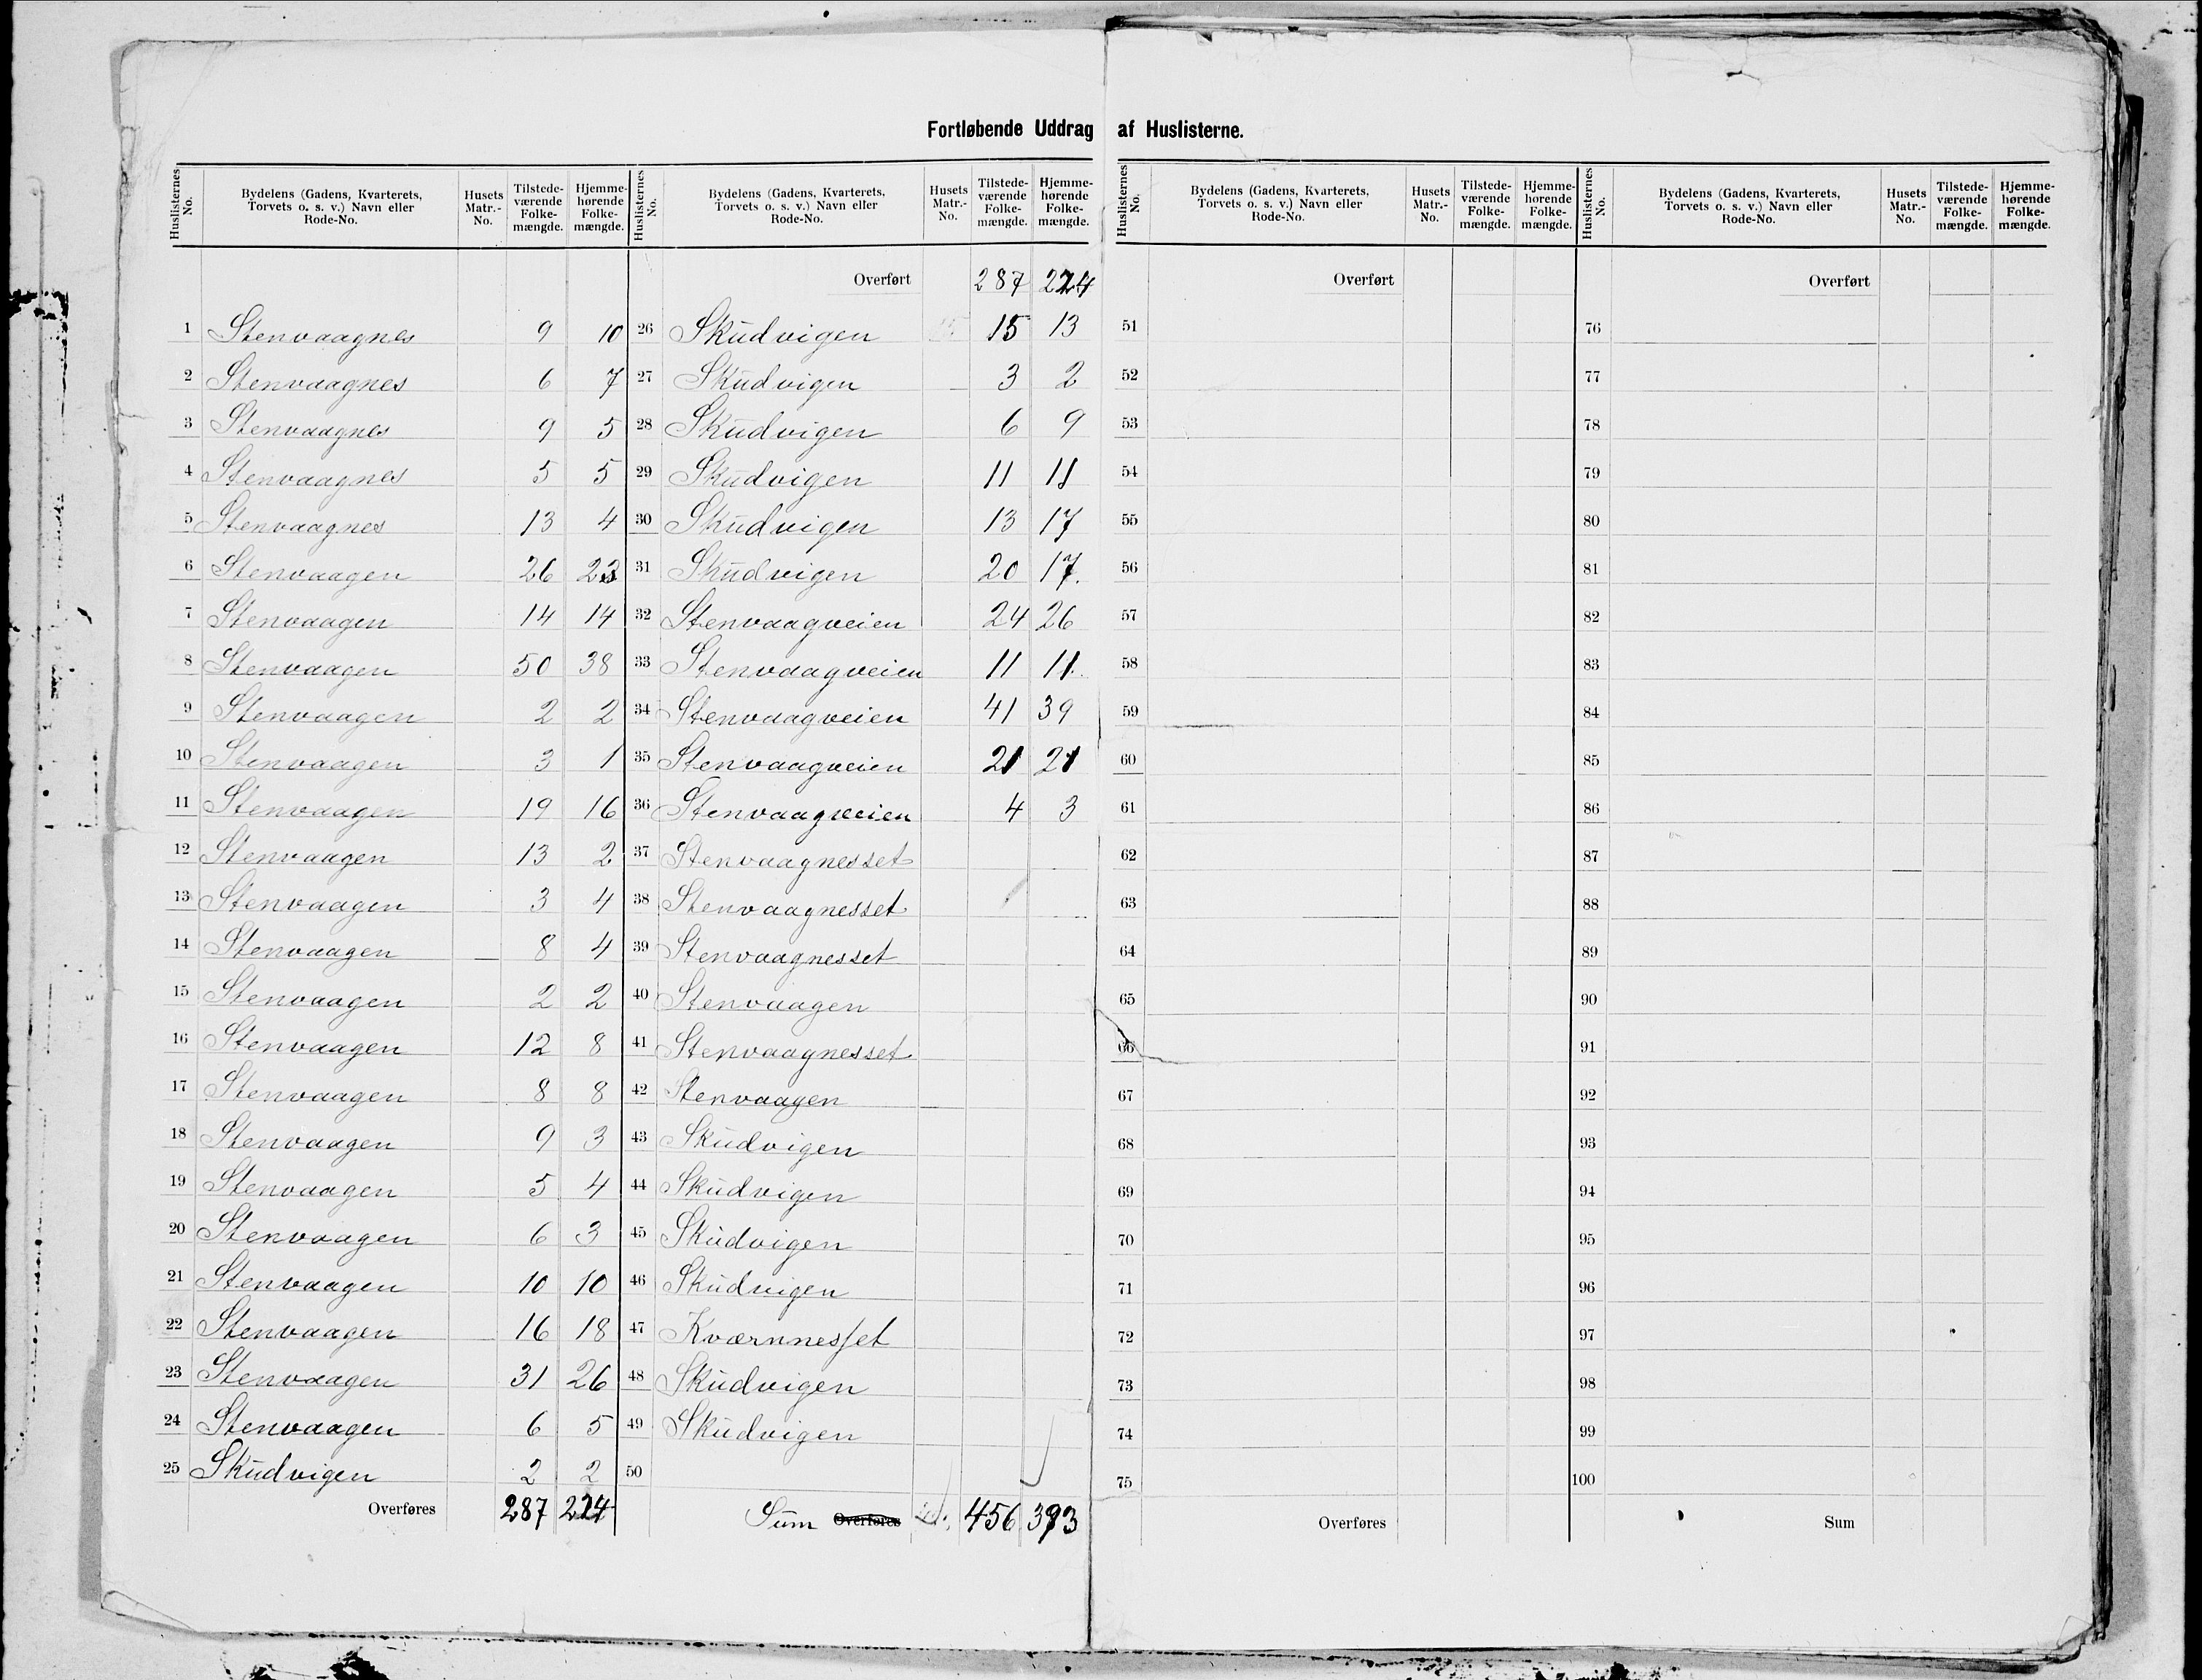 Fortløbende Uddrag af Huslisterne.
Huslisternes No. Bydelens (Gadens, Kvarterets, Torvets o. s. v.) Navn eller Rode-No. Husets Matr.-No. Tilstedeværende Folkemængde. Hjemmehørende Folkemængde.
1 Stenvaagnes 9 10
2 Stenvaagnes 6 7
3 Stenvaagnes 9 5
4 Stenvaagnes 5 5
5 Stenvaagnes 13 4
6 Stenvaagen 26 23
7 Stenvaagen 14 14
8 Stenvaagen 50 38
9 Stenvaagen 2 2
10 Stenvaagen 3 1
11 Stenvaagen 19 16
12 Stenvaagen 13 2
13 Stenvaagen 3 4
14 Stenvaagen 8 4
15 Stenvaagen 2 2
16 Stenvaagen 12 8
17 Stenvaagen 8 8
18 Stenvaagen 9 3
19 Stenvaagen 5 4
20 Stenvaagen 6 3
21 Stenvaagen 10 10
22 Stenvaagen 16 18
23 Stenvaagen 31 26
24 Stenvaagen 6 5
25 Skudvigen 2 2
Overføres 287 224
Huslisternes No. Bydelens (Gadens, Kvarterets, Torvets o. s. v.) Navn eller Rode-No. Husets Matr.-No. Tilstedeværende Folkemængde. Hjemmehørende Folkemængde.
Overført 287 224
26 Skudvigen 15 13
27 Skudvigen 3 2
28 Skudvigen 6 9
29 Skudvigen 11 11
30 Skudvigen 13 17
31 Skudvigen 20 17.
32 Stenvaagveien 24 26
33 Stenvaagveien 11 11.
34 Stenvaagveien 41 39
35 Stenvaagveien 21 21
36 Stenvaagveien 4 3
37 Stenvaagnesset
38 Stenvaagnesset
39 Stenvaagnesset
40 Stenvaagen
41 Stenvaagnesset
42 Stenvaagen
43 Skudvigen
44 Skudvigen
45 Skudvigen
46 Skudvigen
47 Kværnnesset
48 Skudvigen
49 Skudvigen
50
Sum Overføres 456 393
Huslisternes No. Bydelens (Gadens, Kvarterets, Torvets o. s. v.) Navn eller Rode-No. Husets Matr.-No. Tilstedeværende Folkemængde. Hjemmehørende Folkemængde.
Overført
51
52
53
54
55
56
57
58
59
60
61
62
63
64
65
66
67
68
69
70
71
72
73
74
75
Overføres
Huslisternes No. Bydelens (Gadens, Kvarterets, Torvets o. s. v.) Navn eller Rode-No. Husets Matr.-No. Tilstedeværende Folkemængde. Hjemmehørende Folkemængde.
Overført
76
77
78
79
80
81
82
83
84
85
86
87
88
89
90
91
92
93
94
95
96
97
98
99
100
Sum